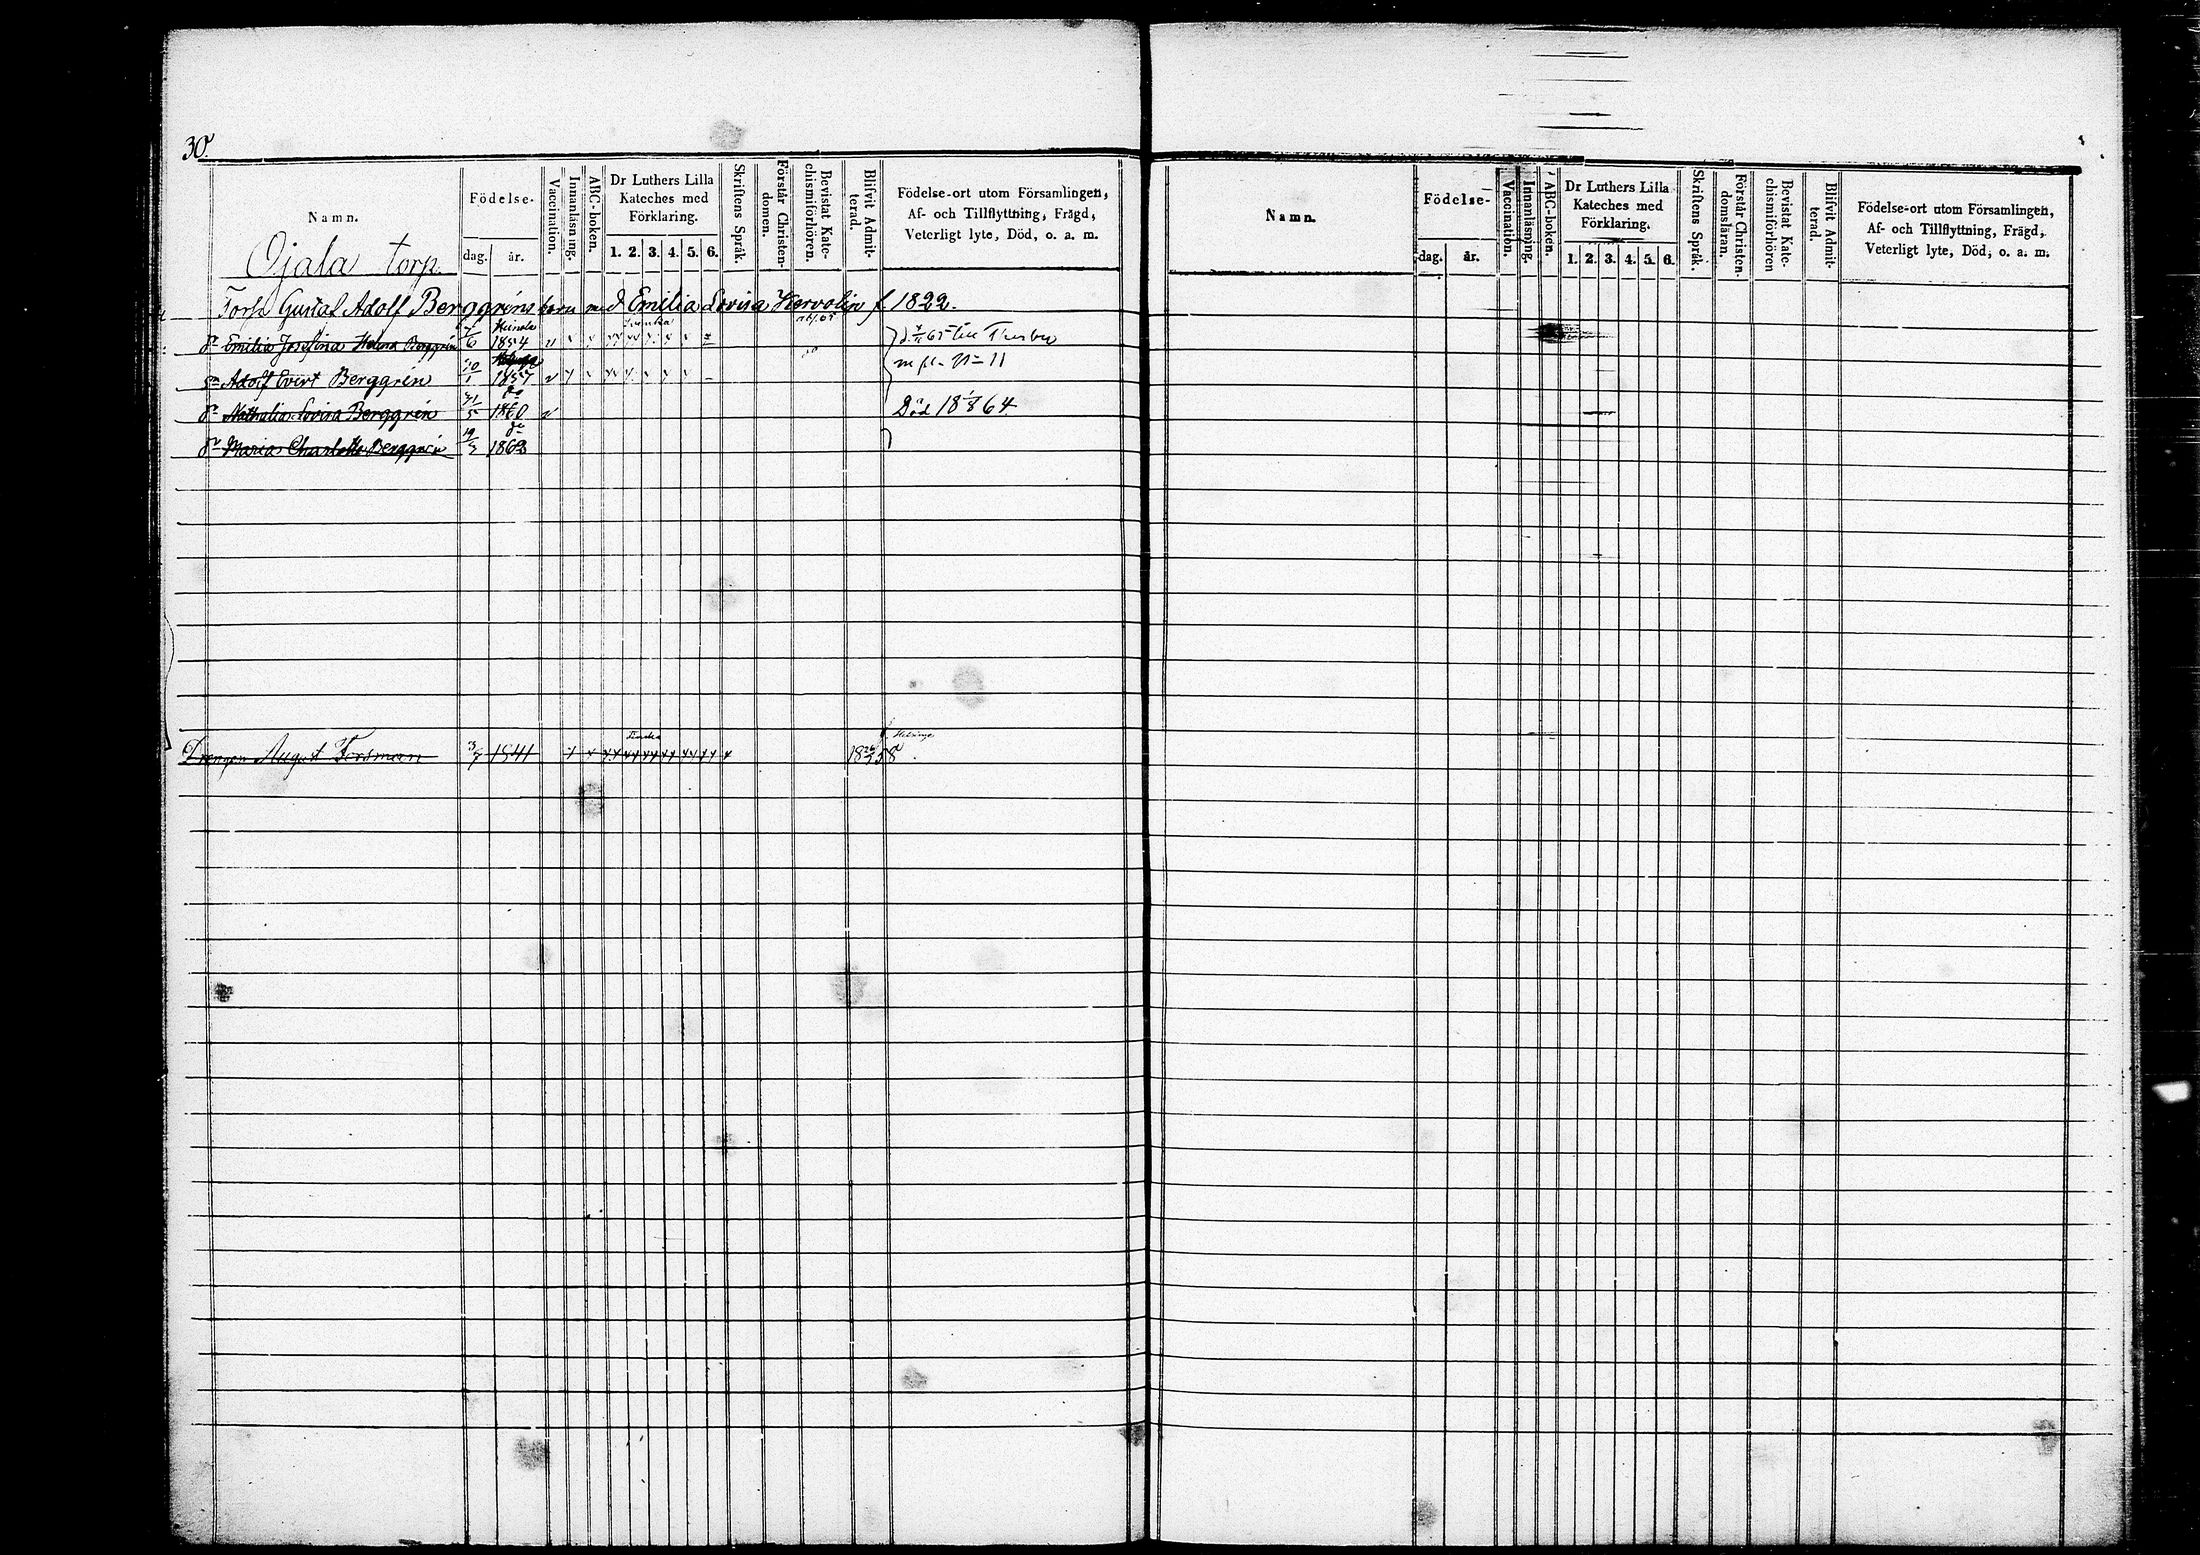 30.
Namn.
Födelse-
dag. år.
Vaccination.
Innanläsning.
ABC-boken.
Dr Luthers Lilla
Kateches med
Förklaring.
1. 2. 3. 4. 5. 6.
Skriftens Språk.
Förstår Christen-
domen.
Bevistat Kate-
chismiförhören.
Blifvit Admit-
terad.
Födelse-ort utom Församlingen,
Af- och Tillflyttning, Frägd,
Veterligt lyte, Död, o. a. m.
Ojala torp.
Torp. Gustaf Adolf Berggréns barn med Emilia Lovisa Hervolin f. 1822.
Heinola Svenska
dr Emilia Josefina Helena Berggrén 6 1854 v
65 till
Adolf Evert Berggrén 1857 v
N 11
dr Nathalia Lovisa Berggrén 31/5 1860 v Död 18 64
dr Maria Charlotta Berggrén 19 1863
Drengen August Forsman 1841 18 58
Namn.
Födelse-
dag. år.
Vaccination.
Innanläsning.
ABC-boken.
Dr Luthers Lilla
Kateches med
Förklaring.
1. 2. 3. 4. 5. 6.
Skriftens Språk.
Förstår Christen-
domsläran.
Bevistat Kate-
chismiförhören
Blifvit Admit-
terad.
Födelse-ort utom Församlingen,
Af- och Tillflyttning, Frägd,
Veterligt lyte, Död, o. a. m.